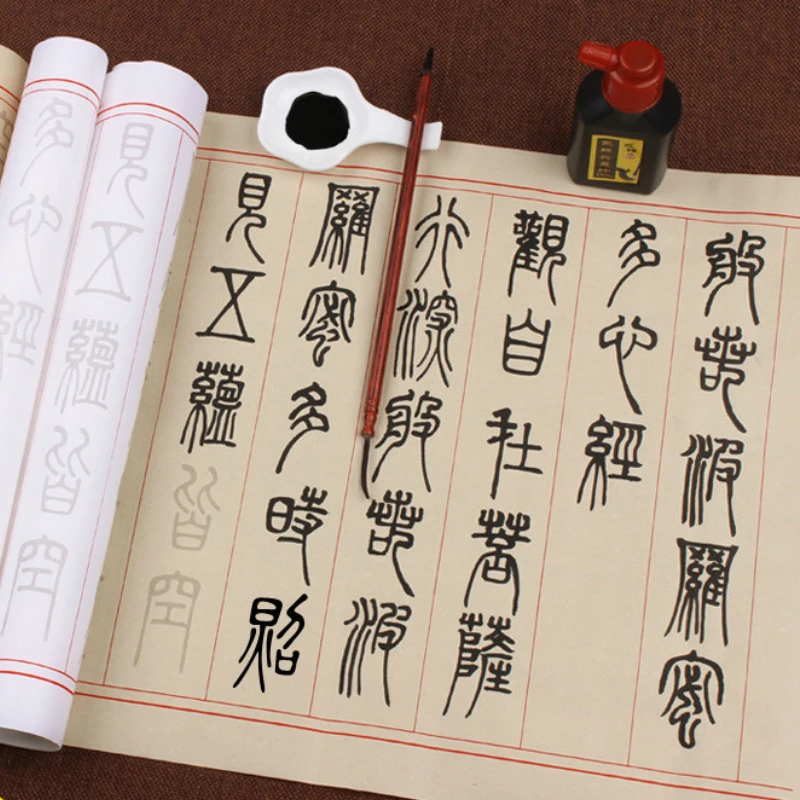 般若波羅蜜
多心經
觀自在菩薩
行深般若波
羅蜜多時照
見五蘊皆空
見五蘊皆空
多心經